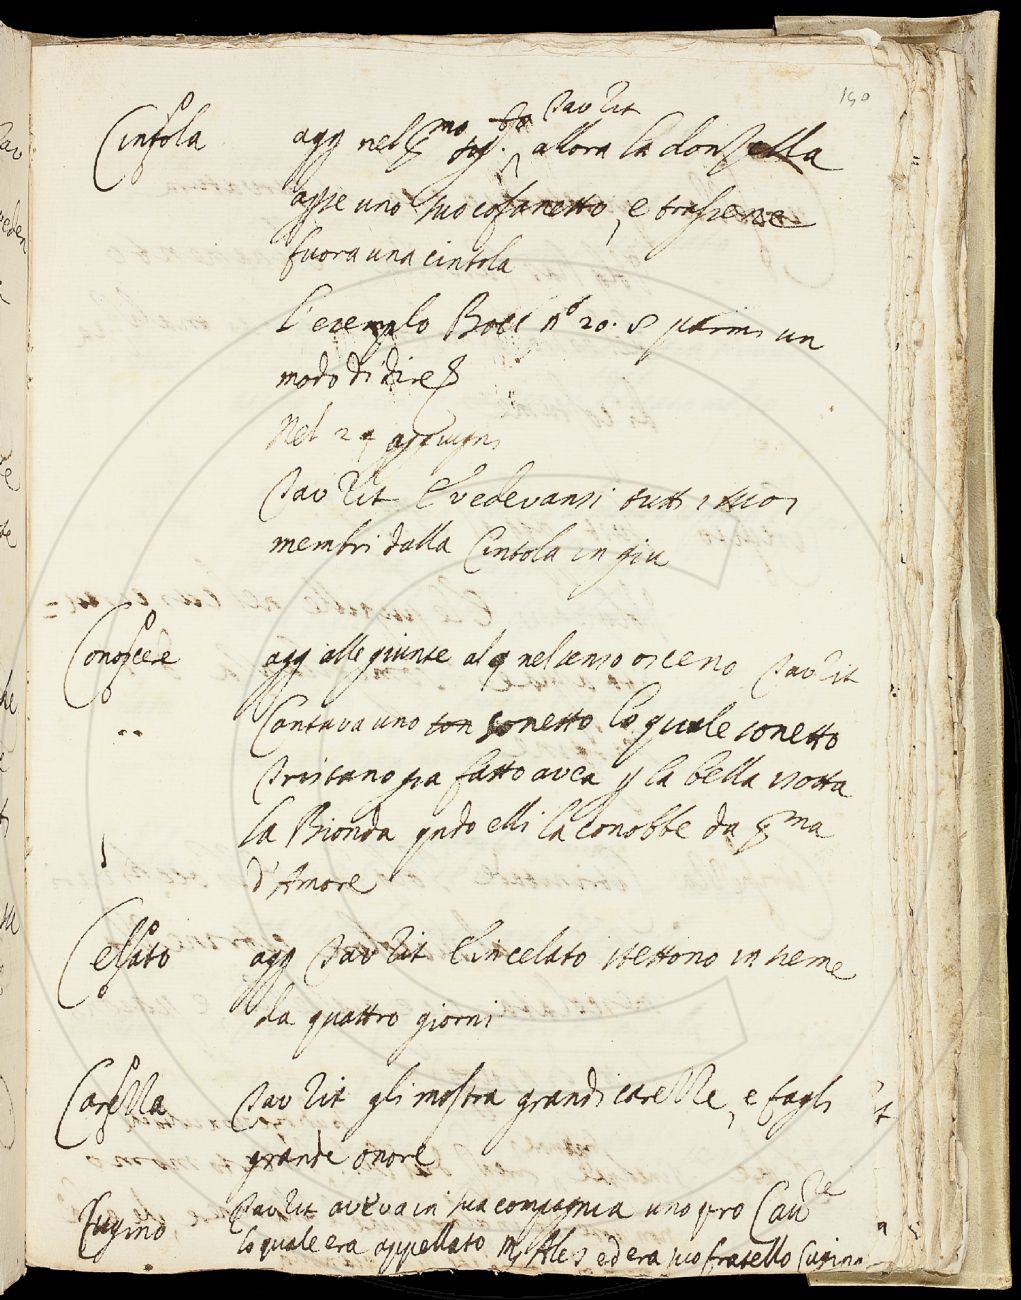 190
Cintola agg nel pmo sig. Tav Rit allora la donzella
apse uno suo cofanetto, e trassene
fuora una cintola
L'esemplo Bocc n° 20. 8 parmi un
modo di dire
Nel 2 § aggiugni
Tav Rit E vedevansi tutti i suoi
membri dalla Cintola in giu
Conoscere agg alle giunte al § nel senso osceno Tav Rit
Cantava uno son sonetto lo quale sonetto
Tristano gia fatto avea p la bella Isotta
la Bionda qndo elli la conobbe da pma
d'Amore
Celato agg Tav Rit E in celato stettono insieme
da quattro giorni
Carella Tav Rit gli mostra grandi carelle, e fagli
grande onore
Cugino Tav Rit aveva in sua compagnia uno pro Cavre
lo quale era appellato ed era suo fratello Cugino